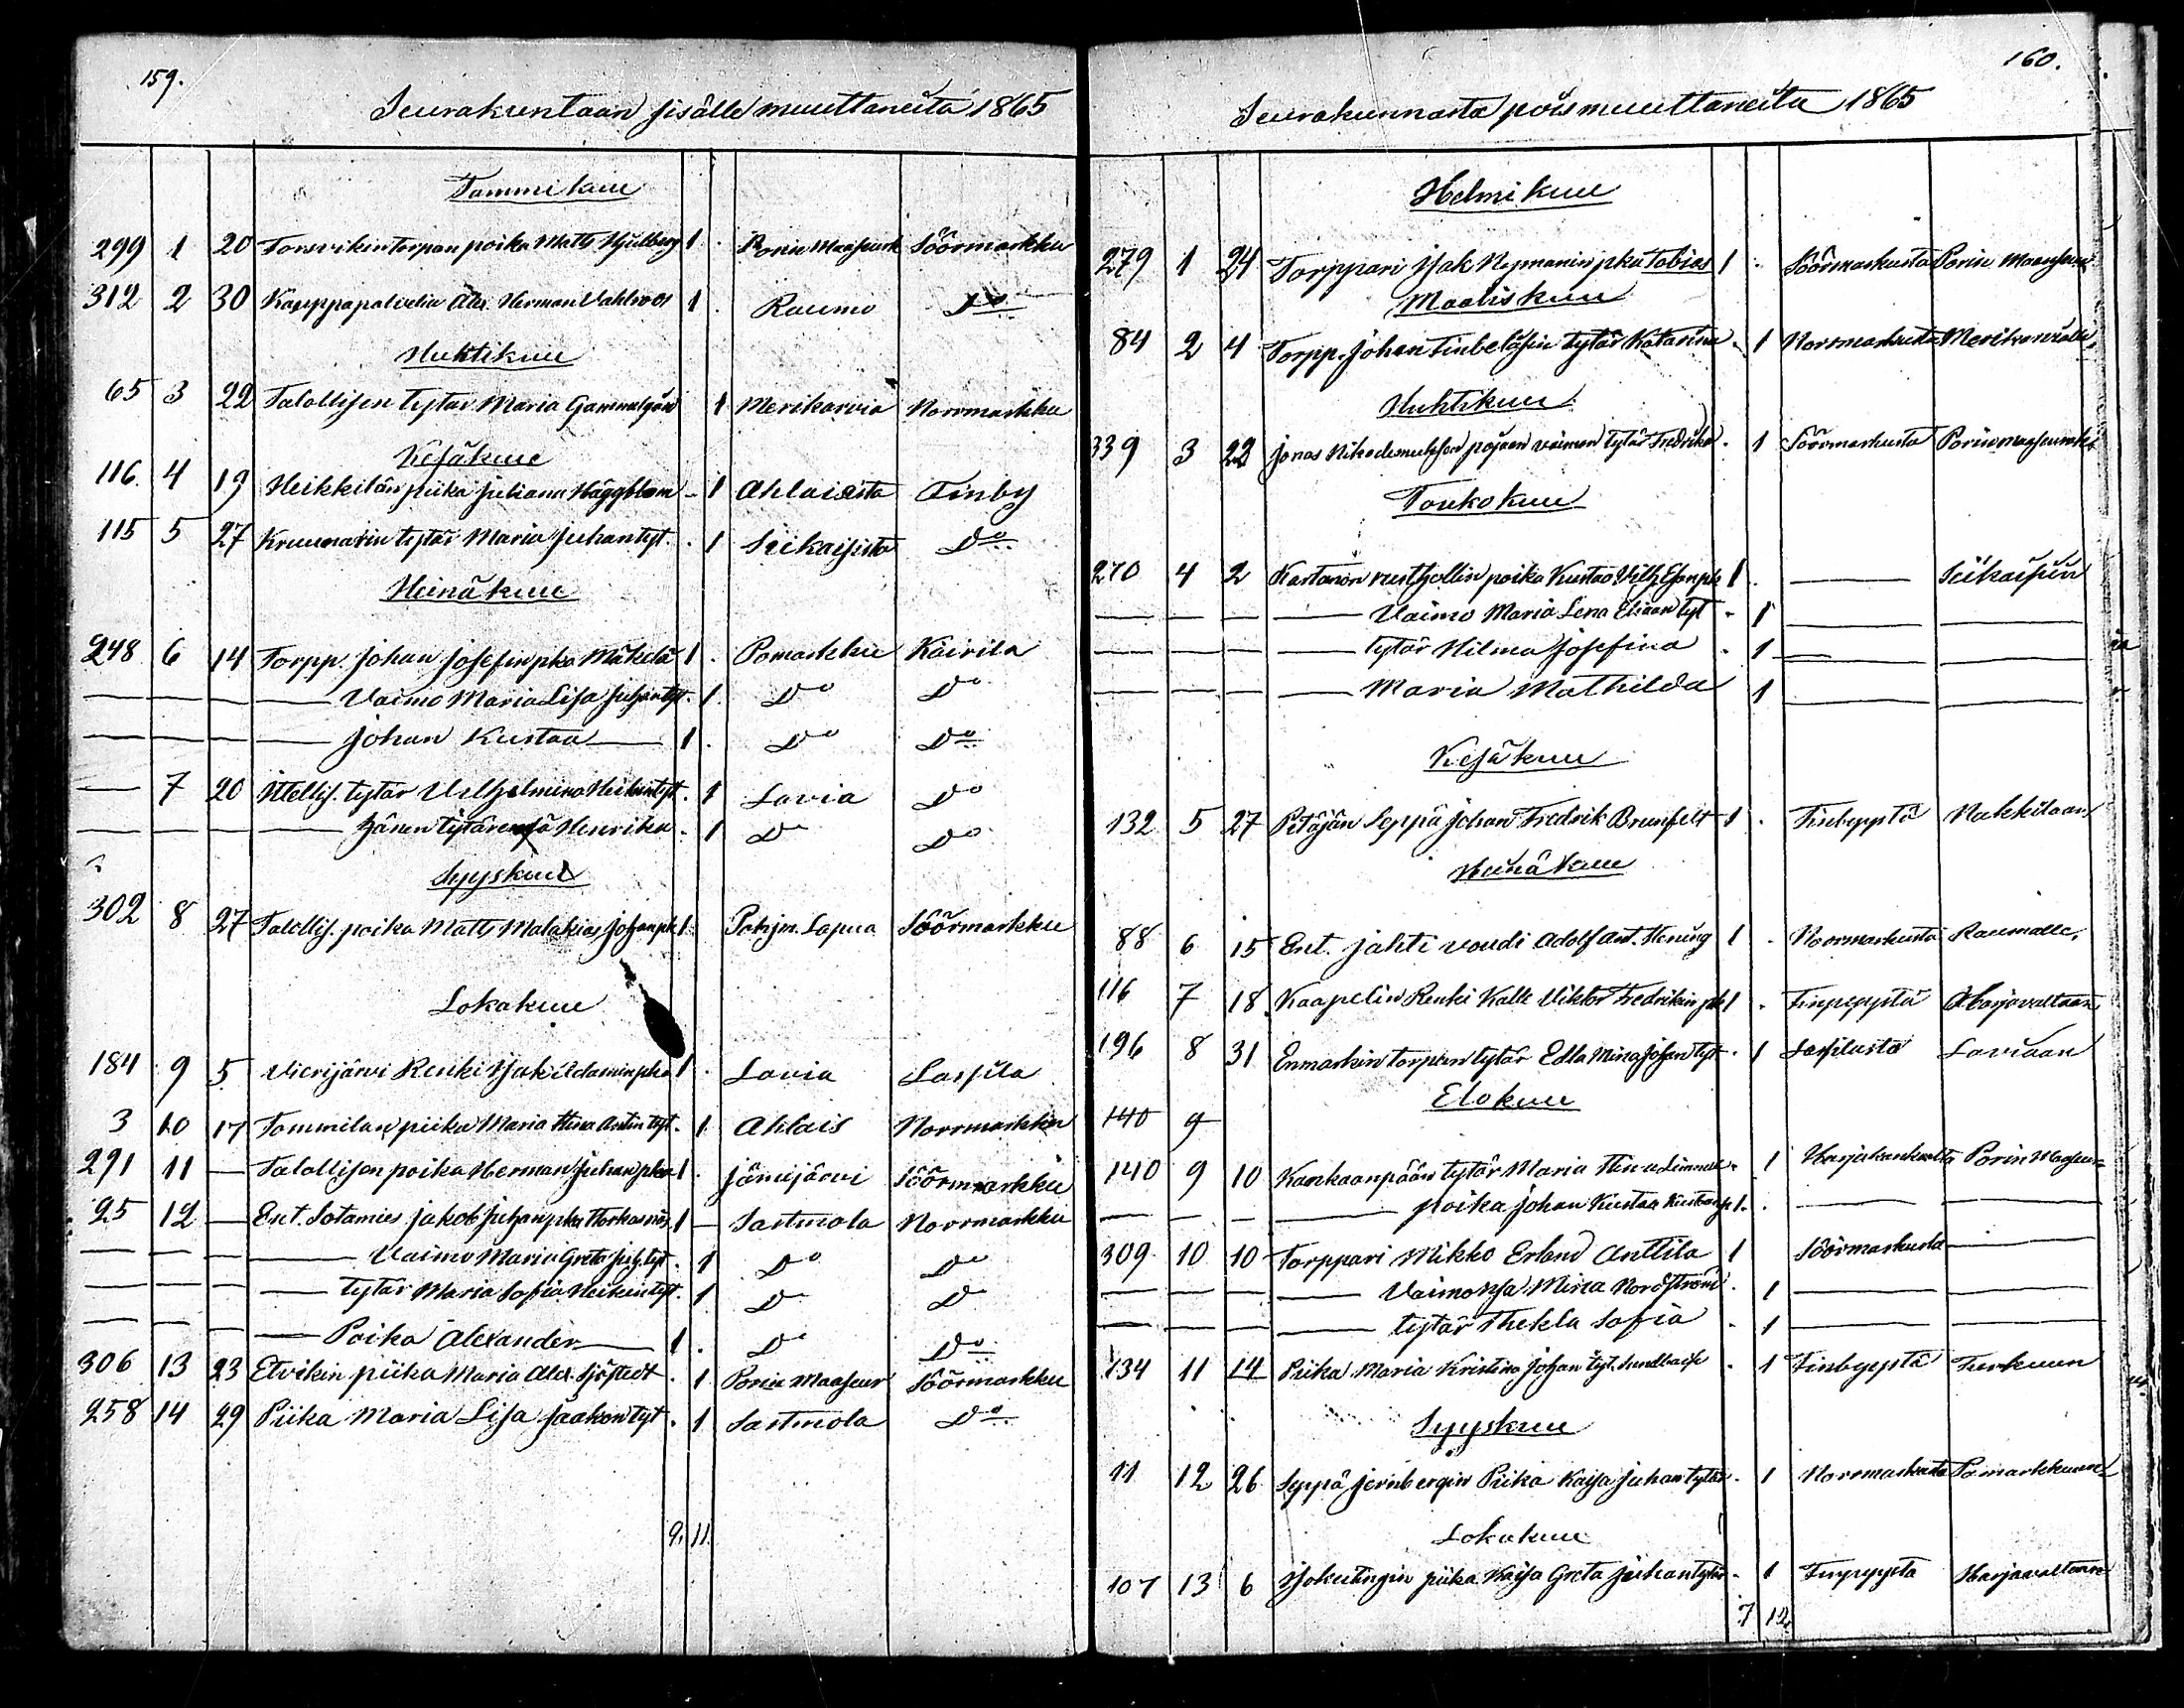 159.
Seurakuntaan sisälle muuttaneita 1865
Tammikuu
299 1 20 Torsvikin torpan poika Matts Hjulberg 1 . Porin Maaseurk Söörmarkku
312 2 30 Kauppapalvelia Alex. Herman Vahlroos 1 . Raumo Do
Huhtikuu
65 3 22 Talollisen tytär Maria Gammelgård 1 Merikarvia Norrmarkku
Kesäkuu
116. 4 19 Heikkilän piika Juliana Häggblom - 1 Ahlaista Finby
115 5 27 Kruunarin tytär Maria Juhantyt. . 1 Siikaisista Do
Heinäkuu
248 6 14 Torpp. Johan Josefin pka Mäkelä 1 . Pomarkku Kairila
— — — — Vaimo Maria Lisa Juhantyt. . 1 Do Do
— — — — Johan Kustaa — 1 . Do Do
— 7 20 Itellis. tytär Vilhelmina Heikintyt . 1 Lavia Do
— — — — hänen tytärensä Henrika . 1 Do Do
Syyskuu
302 8 27 Talollis. poika Matts Malakias Johanpk 1 Pohjm. Lapua Söörmarkku
Lokakuu
184 9 5 Vierijärvi Renki Isak Adamin pka 1 . Lavia Lassila
3 10 17 Tommilan piika Maria Stina Antin tyt . 1 Ahlais Norrmarkku
291 11 — Talollisen poika Herman Juhan pka 1 . Jämijärvi Söörmarkku
25 12 — Ent. Sotamies Jakob Juhan pka 1 — Sastmola Norrmarkku
— — — — Vaimo Maria Greta Juh. tyt . 1 Do Do
— — — — tytär Maria Sofia Heikintyt . 1 Do Do
— — — — Poika Alexander — 1 . Do Do
306 13 23 Etvikin piika Maria Alex. Sjöstedt . 1 Porin Maaseur Söörmarkku
258 14 29 Piika Maria Lisa Jaakon tyt . 1 Sastmola Do
9. 11.
160.
Seurakunnasta pois muuttaneita 1865
Helmikuu
279 1 24 Torppari Isak Nymanin pka Tobias 1 . Söörmarkusta Porin Maaseur
Maaliskuu
84 2 4 Torpp. Johan Finbeläsin tytär Katarina . 1 Norrmarkusta Merikarvialle
Huhtikuu
339 3 22 Jonas Nikodemuksen pojaan vaimon tytär Fredrika . 1 Söörmarkusta Porin maaseurak
Toukokuu
270 4 2 Kartanon rusthollin poika Kustaa Vilh. Esanpk 1 . — Siikaisiin
— — — — Vaimo Maria Lena Elian tyt . 1 — —
— — — — tytär Hilma Josefina . 1 — —
— — — — Maria Mathilda 1 — —
Kesäkuu
132 5 27 Pitäjän Seppä Johan Fredrik Brunfelt 1 . Finbyystä Nakkilaan
Heinäkuu
88 6 15 Ent. jahti voudi Adolf Ant. Hening 1 . Noormarkusta Raumalle,
116 7 18 Kaapelin Renki Kalle Viktor Fredrikin pk 1 . Finpyystä Harjavaltaan
196 8 31 Enmarkin torpan tytär Edla Mina Johan tyt . 1 Lassilasta Laviaan
Elokuu
140 9
140 9 10 Kankaanpään tytär Maria Stina . 1 Harjakankaalta Porin Maaseur
— — — — poika Johan Kustaa Kustaanp 1 . — —
309 10 10 Torppari Mikko Erland Anttila 1 Söörmarkusta —
— — — — Vaimonsa Mina Nordström . 1 — —
— — — — tytär Thekla Sofia . 1 — —
134 11 14 Piika Maria Kristina Johan tyt. . 1 Finbyystä Turkuun
Syyskuu
11 12 26 Seppä Jernbergin Piika Kaisa Juhan tytär . 1 Norrmarkusta Pomarkkuun
Lokakuu
107 13 6 piika Kaisa Greta Juhantytär . 1 Finpyysta Harjavaltaan
7 12